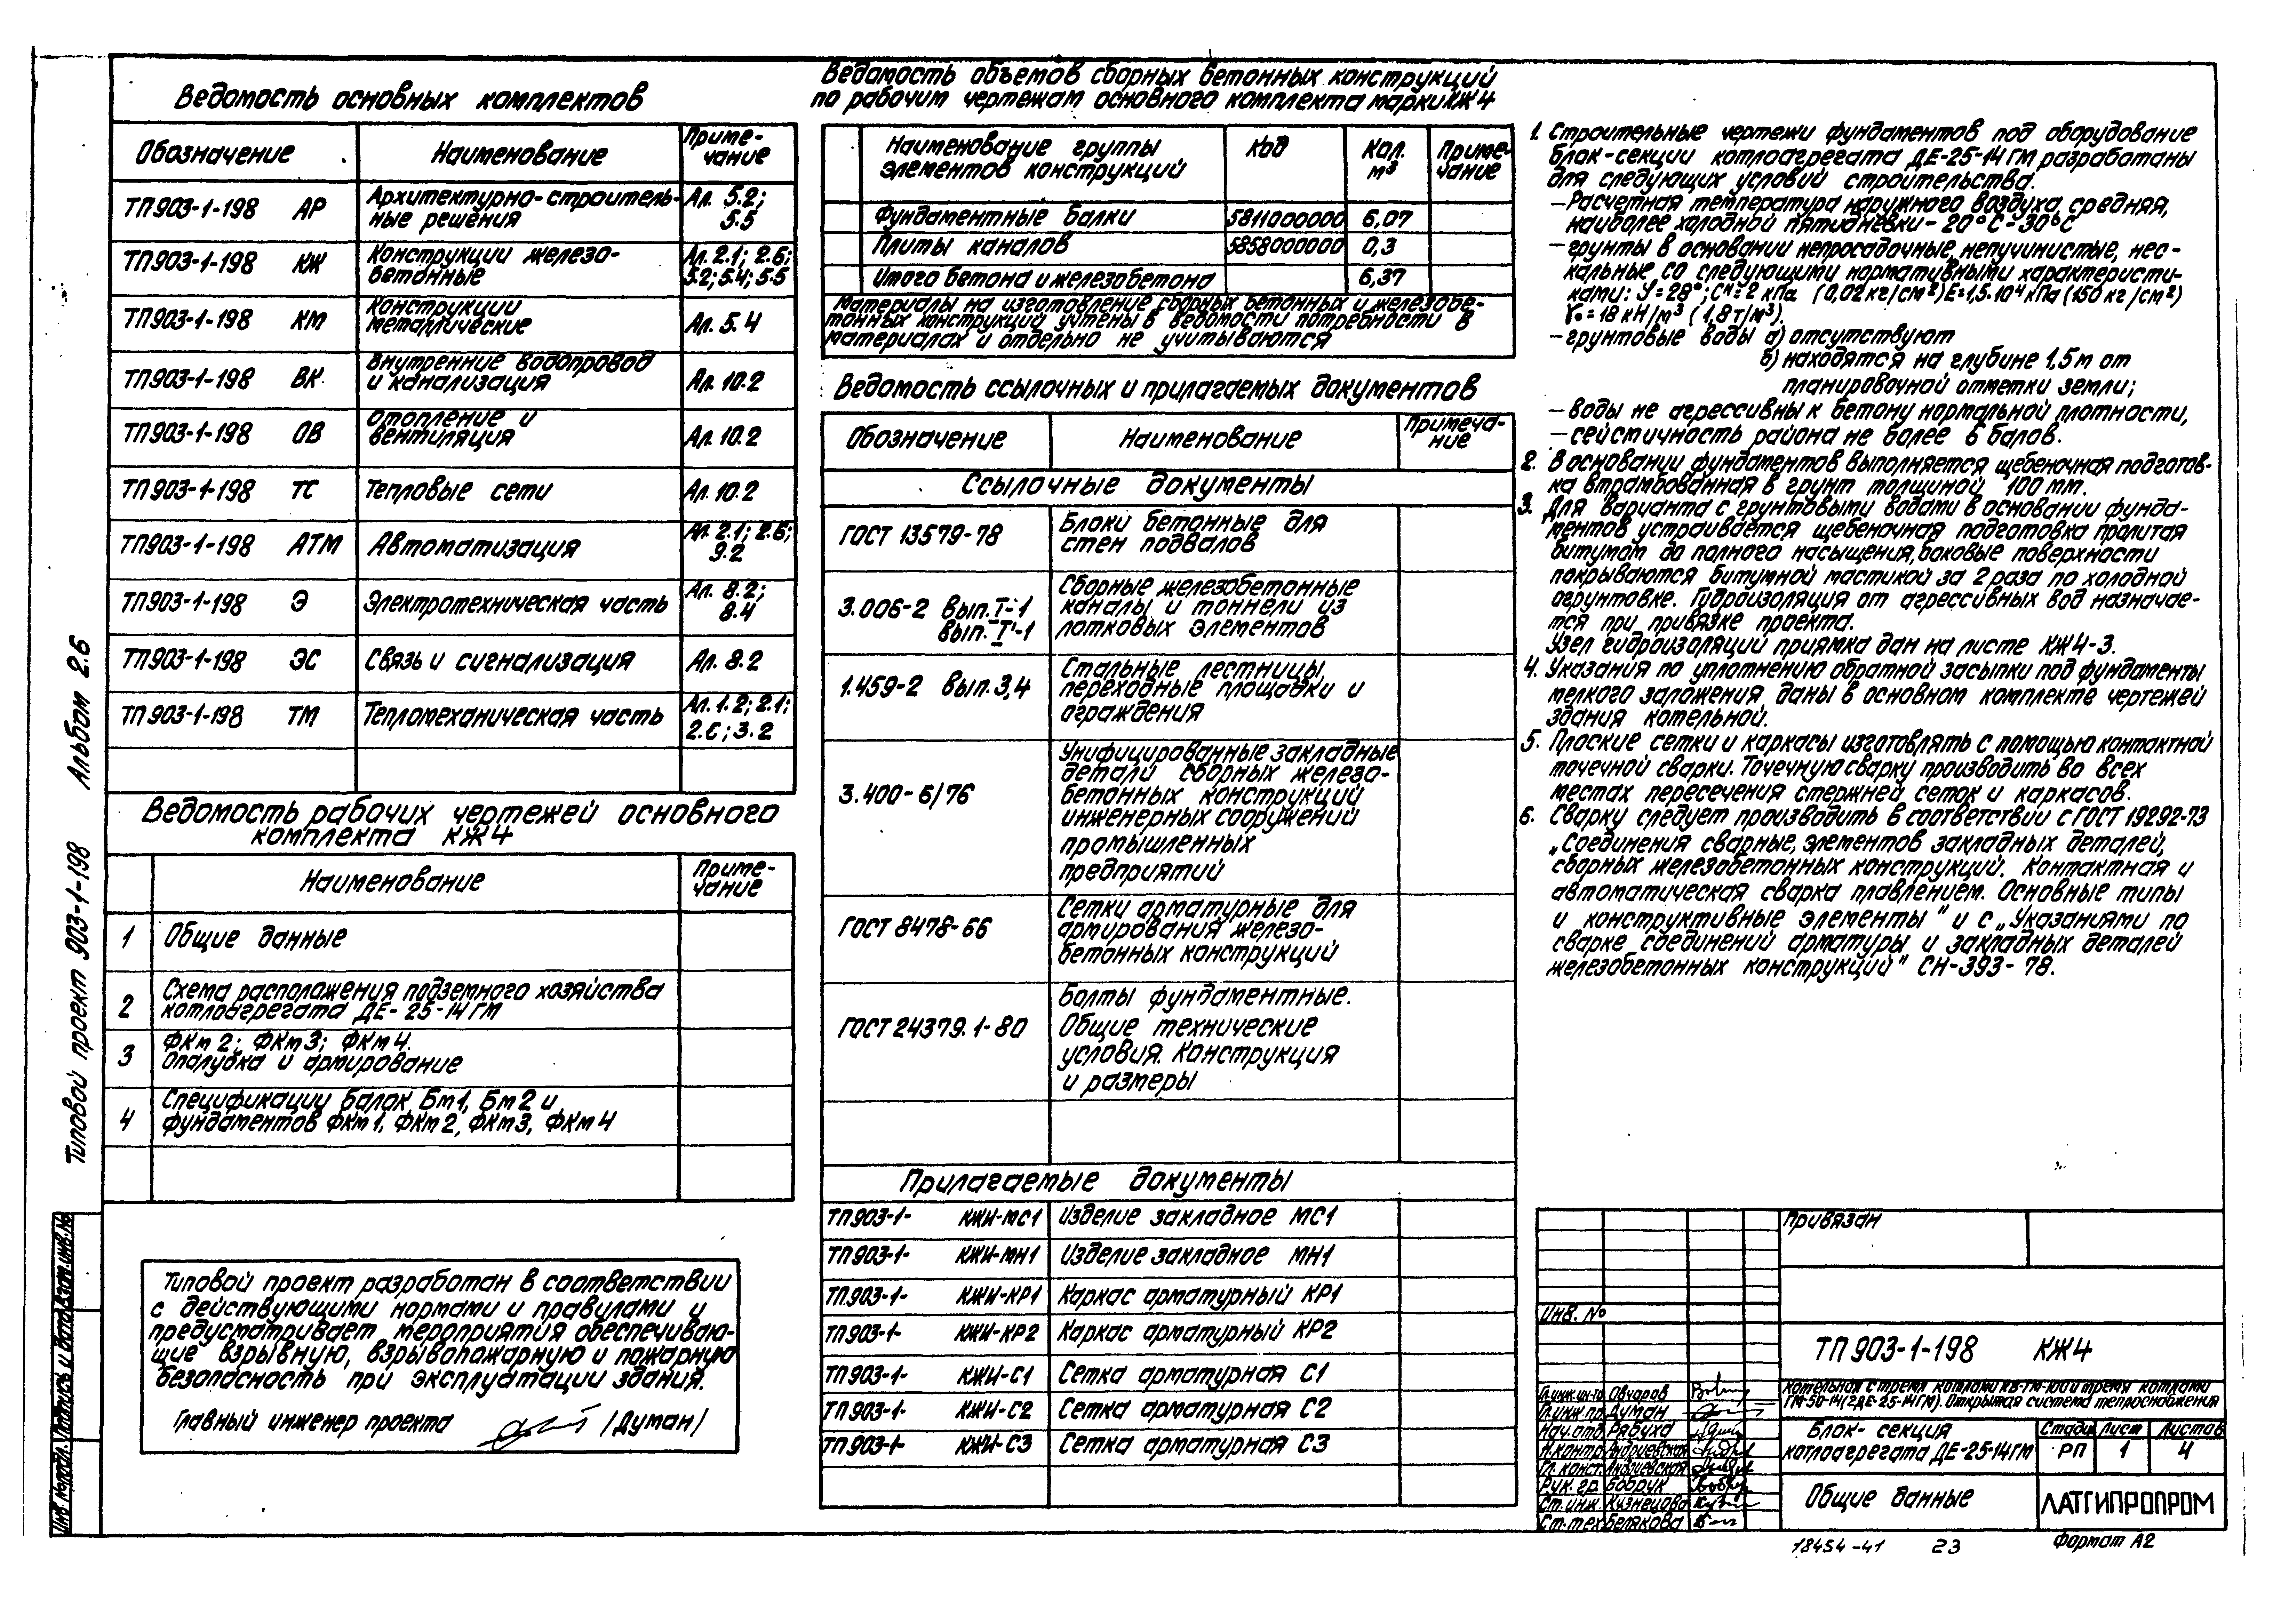 Ведомость основных комплектов
Обозначение Наименование Приме-
чание
ТП903-1-198 АР Архитектурно-строитель-
ные решения Ал. 5.2;
5.5
ТП903-1-198 КЖ Конструкции железо-
бетонные Ал. 2.1; 2.6;
5.2; 5.4; 5.5
ТП903-1-198 КМ Конструкции
металлические Ал. 5.4
ТП903-1-198 ВК Внутренние водопровод
и канализация Ал. 10.2
ТП903-1-198 ОВ Отопление и
вентиляция Ал. 10.2
ТП903-1-198 ТС Тепловые сети Ал. 10.2
ТП903-1-198 АТМ Автоматизация Ал. 2.1; 2.6;
9.2
ТП903-1-198 Э Электротехническая часть Ал. 8.2;
8.4
ТП903-1-198 ЭС Связь и сигнализация Ал. 8.2
ТП903-1-198 ТМ Тепломеханическая часть Ал. 1.2; 2.1;
2.6; 3.2
Ведомость рабочих чертежей основного
комплекта КЖ4
Наименование Приме-
чание
1 Общие данные
2 Схема расположения подземного хозяйства
котлоагрегата ДЕ-25-14ГМ
3 ФКм2; ФКм3; ФКм4.
Опалубка и армирование
4 Спецификации балок Бм1, Бм2 и
фундаментов ФКм1, ФКм2, ФКм3, ФКм4
Типовой проект разработан в соответствии
с действующими нормами и правилами и
предусматривает мероприятия обеспечиваю-
щие взрывную, взрывопожарную и пожарную
безопасность при эксплуатации здания.
Главный инженер проекта /Думан/
Типовой проект 903-1-198 Альбом 2.6
Инв. № подл. Подпись и дата Взам. инв. №
Ведомость объемов сборных бетонных конструкций
по рабочим чертежам основного комплекта марки КЖ4
Наименование группы
элементов конструкций Код Кол.
м³ Приме-
чание
Фундаментные балки 5811000000 6,07
Плиты каналов 5858000000 0,3
Итого бетона и железобетона 6,37
Материалы на изготовление сборных бетонных и железобе-
тонных конструкций учтены в ведомости потребности в
материалах и отдельно не учитываются
Ведомость ссылочных и прилагаемых документов
Обозначение Наименование Примеча-
ние
Ссылочные документы
ГОСТ 13579-78 Блоки бетонные для
стен подвалов
3.006-2 вып. I-1
вып. II-1 Сборные железобетонные
каналы и тоннели из
лотковых элементов
1.459-2 вып. 3,4 Стальные лестницы,
переходные площадки и
ограждения
3.400-6/76 Унифицированные закладные
детали сборных железо-
бетонных конструкций
инженерных сооружений
промышленных
предприятий
ГОСТ 8478-66 Сетки арматурные для
армирования железо-
бетонных конструкций
ГОСТ 24379.1-80 Болты фундаментные.
Общие технические
условия. Конструкция
и размеры
Прилагаемые документы
ТП903-1- КЖИ-МС1 Изделие закладное МС1
ТП903-1- КЖИ-МН1 Изделие закладное МН1
ТП903-1- КЖИ-КР1 Каркас арматурный КР1
ТП903-1- КЖИ-КР2 Каркас арматурный КР2
ТП903-1- КЖИ-С1 Сетка арматурная С1
ТП903-1- КЖИ-С2 Сетка арматурная С2
ТП903-1- КЖИ-С3 Сетка арматурная С3
1. Строительные чертежи фундаментов под оборудование
блок-секции котлоагрегата ДЕ-25-14ГМ разработаны
для следующих условий строительства.
-Расчетная температура наружного воздуха средняя,
наиболее холодной пятидневки -20°С -30°С
-грунты в основании непросадочные, непучинистые, нес-
кальные со следующими нормативными характеристи-
ками: У=28°; Сн=2 кПа (0,02 кг/см²) Е=1,5·10⁴ кПа (150 кг/см²)
γо=18 кН/м³ (1,8т/м³).
-грунтовые воды а) отсутствуют
б) находятся на глубине 1,5м от
планировочной отметки земли;
-воды не агрессивны к бетону нормальной плотности,
-сейсмичность района не более 6 балов.
2. В основании фундаментов выполняется щебеночная подготов-
ка втрамбованная в грунт толщиной 100мм.
3. Для варианта с грунтовыми водами в основании фунда-
ментов устраивается щебеночная подготовка пролитая
битумом до полного насыщения, боковые поверхности
покрываются битумной мастикой за 2 раза по холодной
огрунтовке. Гидроизоляция от агрессивных вод назначае-
тся при привязке проекта.
Узел гидроизоляций приямка дан на листе КЖ4-3.
4. Указания по уплотнению обратной засыпки под фундаменты
мелкого заложения даны в основном комплекте чертежей
здания котельной.
5. Плоские сетки и каркасы изготовлять с помощью контактной
точечной сварки. Точечную сварку производить во всех
местах пересечения стержней сеток и каркасов.
6. Сварку следует производить в соответствии с ГОСТ 19292-73
„Соединения сварные, элементов закладных деталей,
сборных железобетонных конструкций. Контактная и
автоматическая сварка плавлением. Основные типы
и конструктивные элементы" и с „Указаниями по
сварке соединений арматуры и закладных деталей
железобетонных конструкций" СН-393-78.
Привязан
Инв. №
ТП903-1-198 КЖ4
Котельная с тремя котлами КВ-ГМ-100 и тремя котлами
ГМ-50-14(2ДЕ-25-14ГМ). Открытая система теплоснабжения
Гл.инж.ин-та Овчаров
Гл.инж.пр. Думан
Нач.отд. Рябуха
Н.контр. Андриевская
Гл.конст. Андриевская
Рук.гр. Бобрук
Ст.инж. Кузнецова
Ст.тех. Белякова
Блок-секция
котлоагрегата ДЕ-25-14ГМ
Стадия Лист Листов
РП 1 4
Общие данные
ЛАТГИПРОПРОМ
18454-41 23
Формат А2